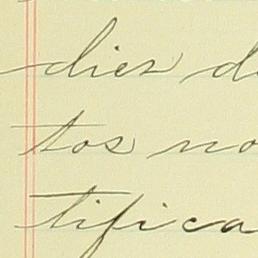 diez d
tos no
tifica